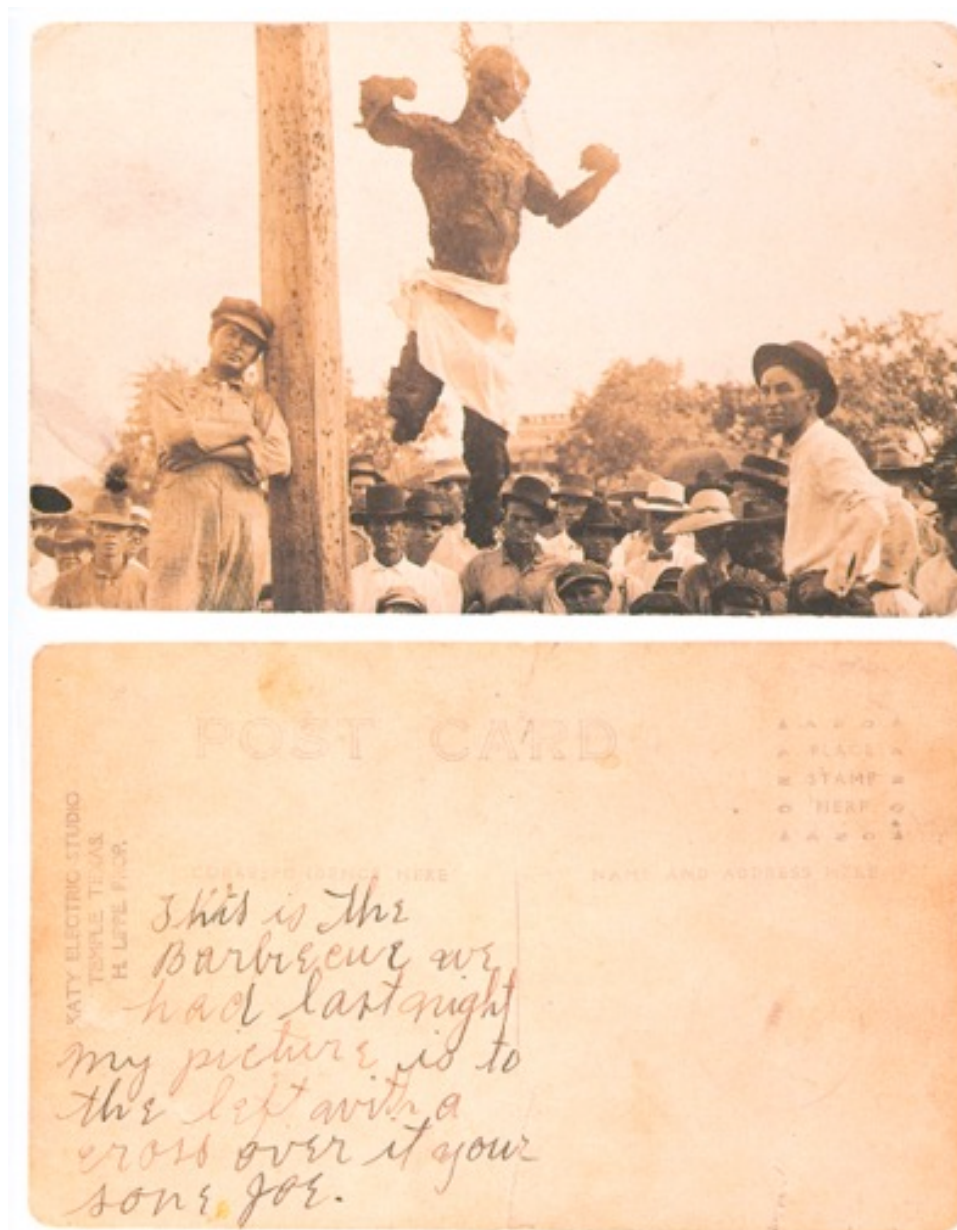 POST CARD
PLACE
STAMP
HERE
KATY ELECTRIC STUDIO
TEMPLE TEXAS
H. LIPPE PROP.
CORRESPONDENCE HERE
NAME AND ADDRESS HERE
This is the
Barbecue we
had last night
my picture is to
the left with a
cross over it your
sone Joe.